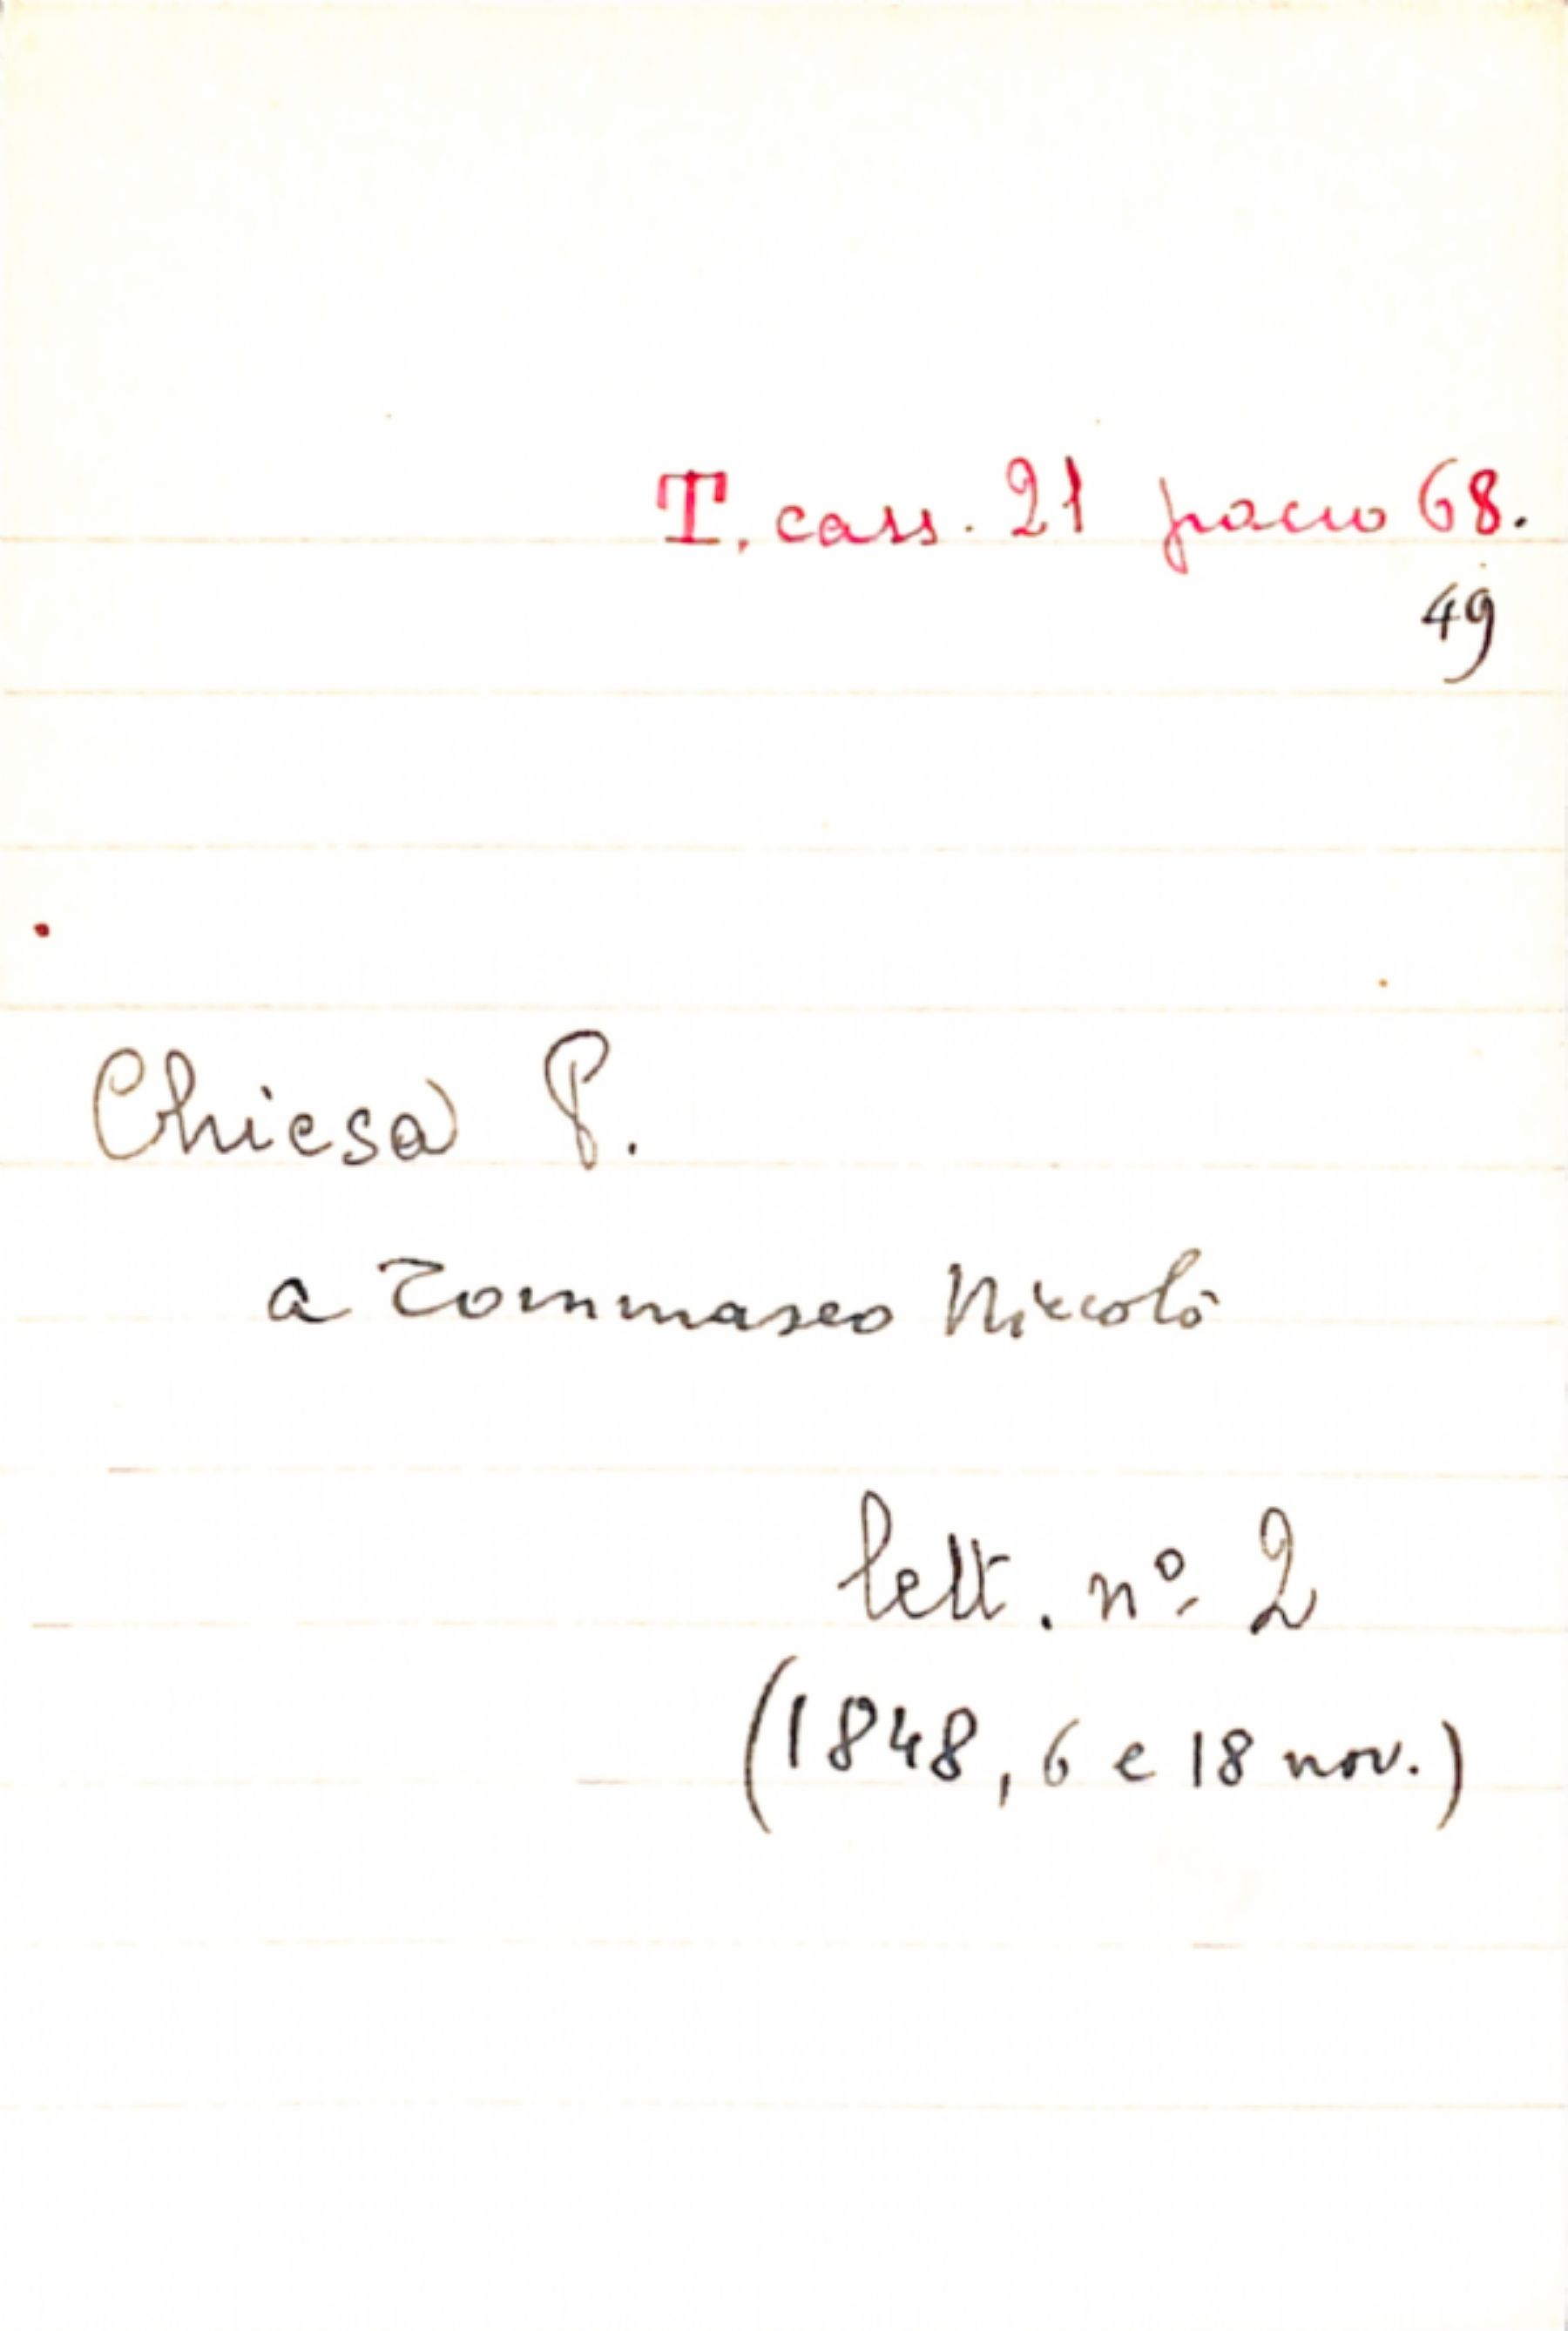 T. cass. 21 pacco 68.
49
Chiesa P.
a Tommaseo Niccolò
lett. nº 2
(1848, 6 e 18 nov.)